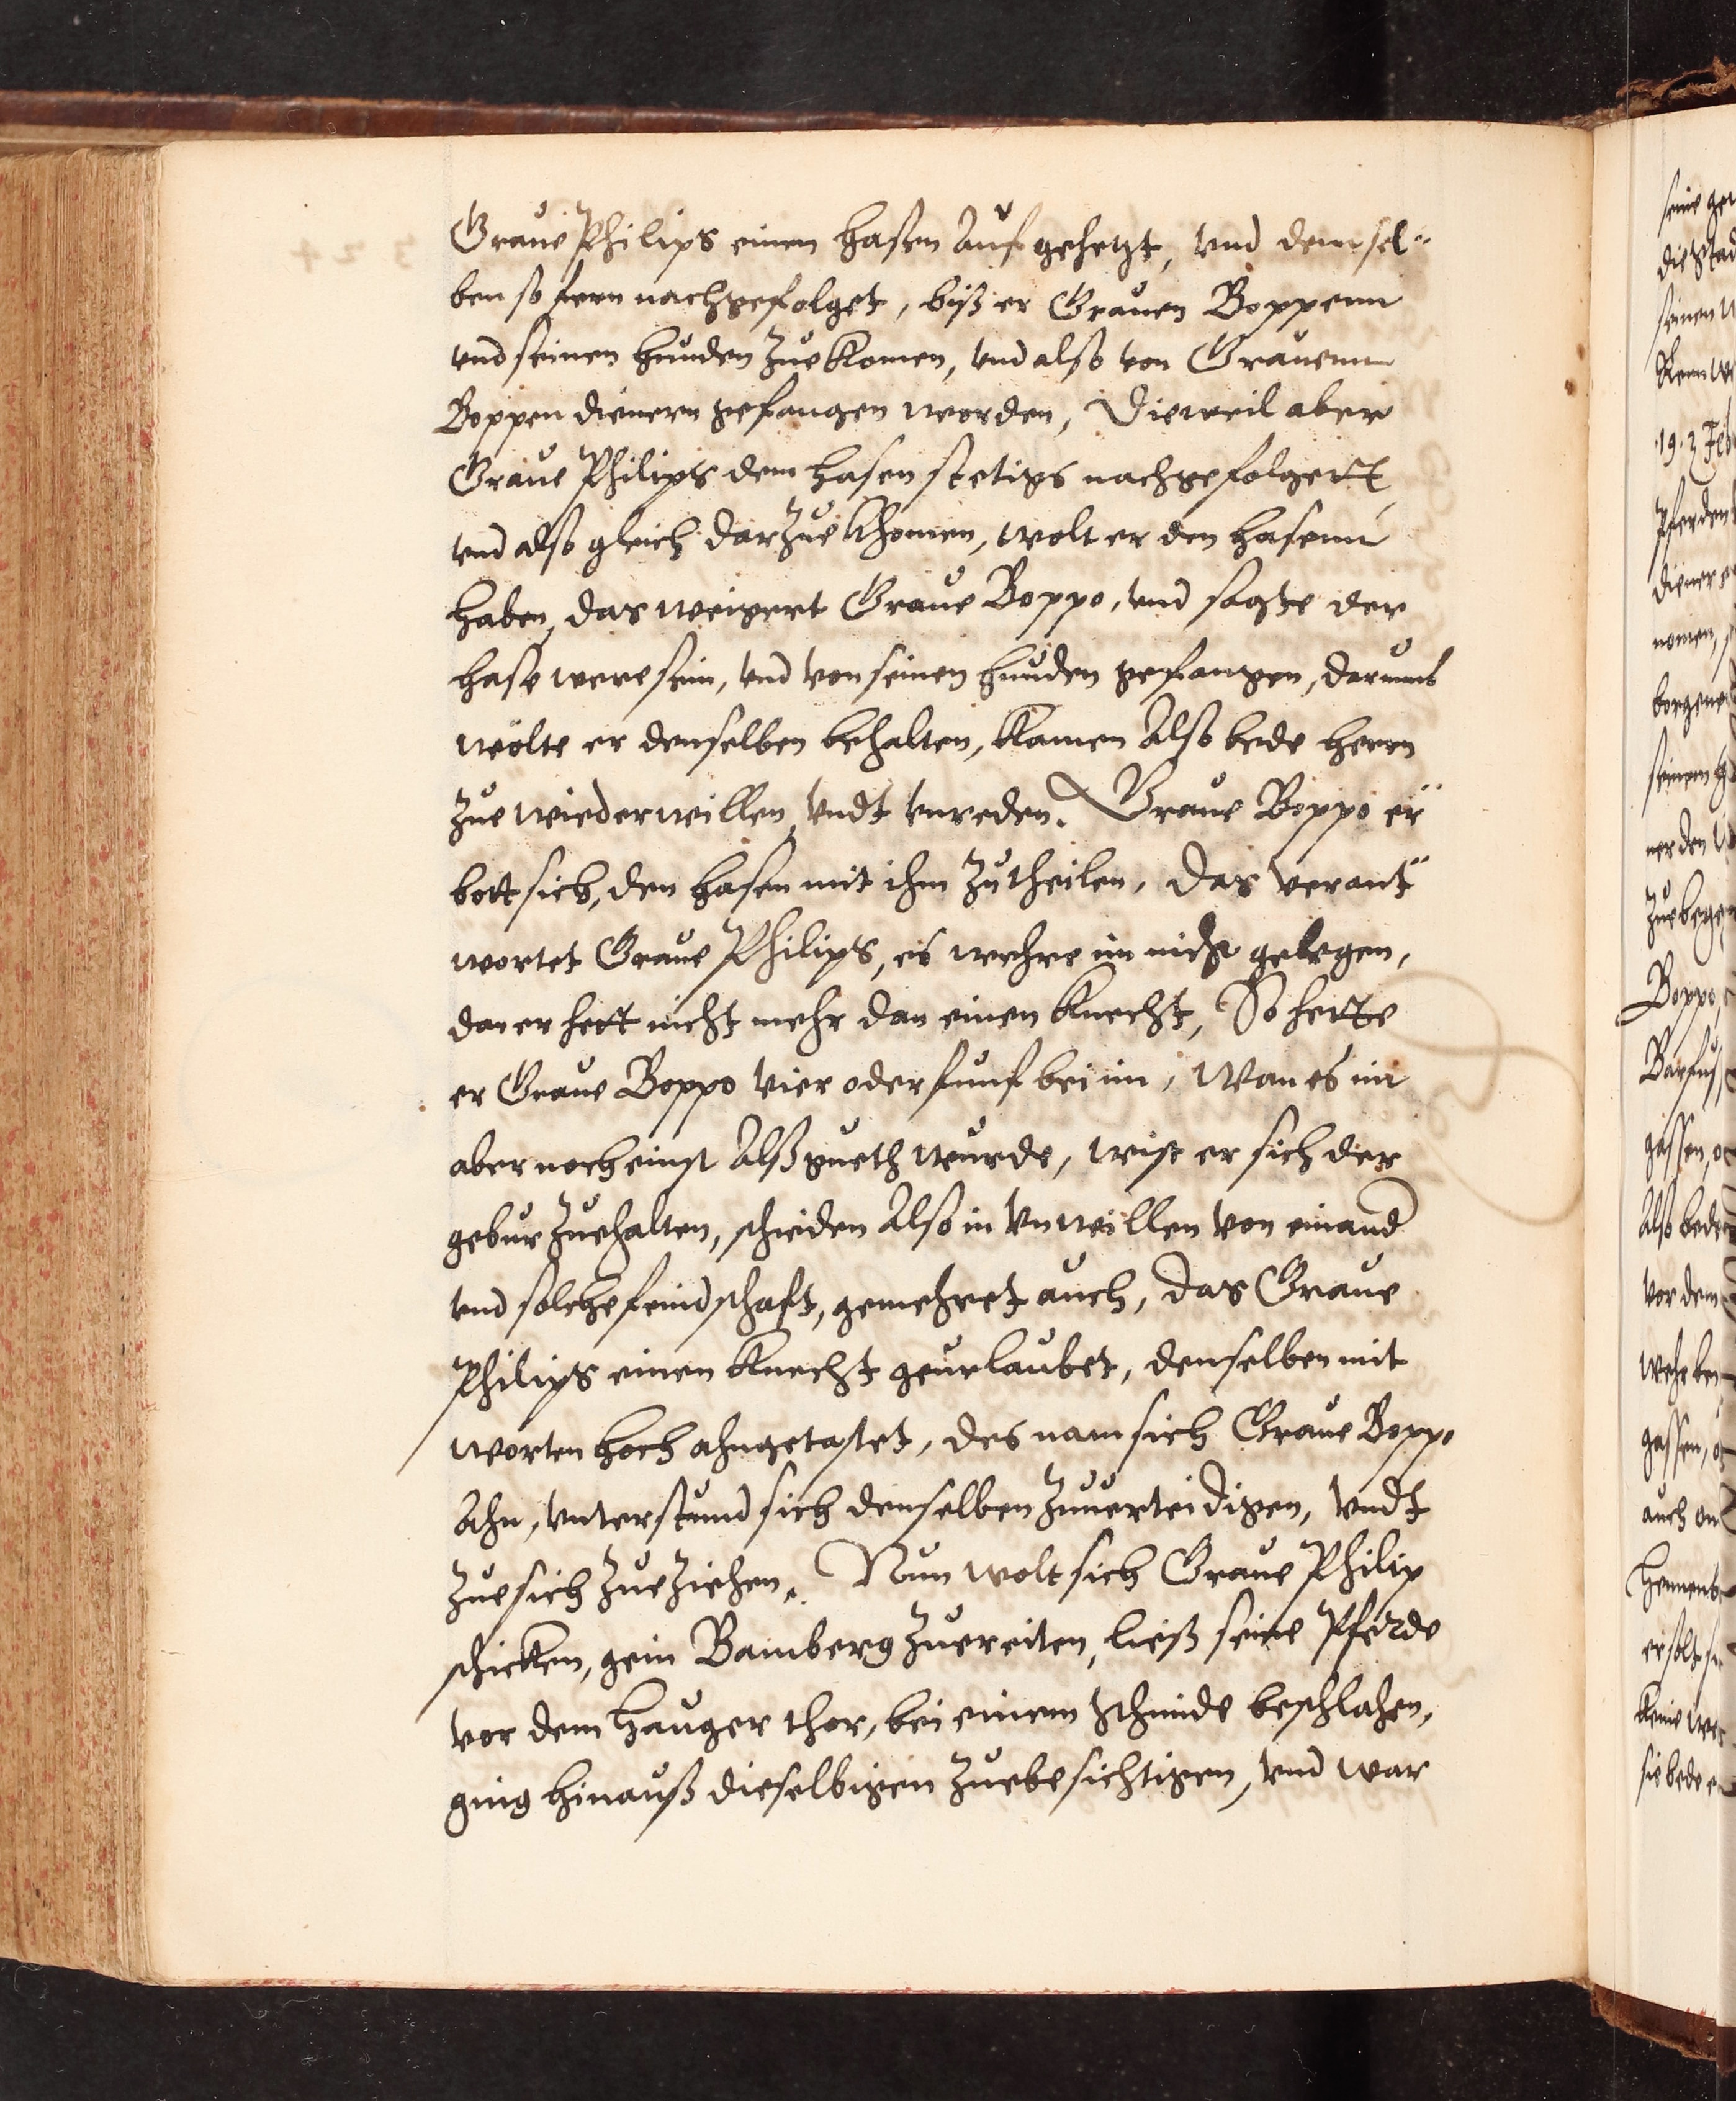 Graue Philips einen hasen Auf gehetzt, vnd demsel¨
ben so fern nachgefolget, biß er Grauen Boppenn
vnd seinen hunden zue komen, vnd also von Grauenn
Boppen dienern gefangen worden, Dieweil aber
Graue Philips dem hasen stetigs nachgefolgett,
vnd also gleich darzue khomen, wolt er den hasenn
haben, das weigert Graue Boppo, vnd sagte der
hase were sein, vnd von seinen hunden gefangen, darumb
wölte er denselben behalten, kamen Also bede herrn
zue wiederwillen, vndt vnreden. Graue Boppo er¨
bott sich, den hasen mit ihm zu theilen, das verant¨
wortet Graue Philips, es wehre im nicht gelegen,
dan er hett nicht mehr dan einen knecht, So hette
er Graue Boppo vier oder funf bei im, Wan es im
aber noch einst Alß gueth wurde, wist er sich der
gebur zuehalten, schieden Also in Vnwillen von einand
vnd solche feindschaft, gemehret auch, das Graue
Philips einen knecht geurlaubet, denselben mit
worten hoch ahngetastet, des nam sich Graue Boppo
Ahn, vnterstund sich denselben zuuerteidigen, vndt
zue sich zue ziehen. Nun wolt sich Graue Philip
schicken, gein Bamberg zuereiten, ließ seine Pferde
vor dem Hauger thor, bei einem schmide beschlahen,
ging hinauß dieselbigen zuebesichtigen, vnd war